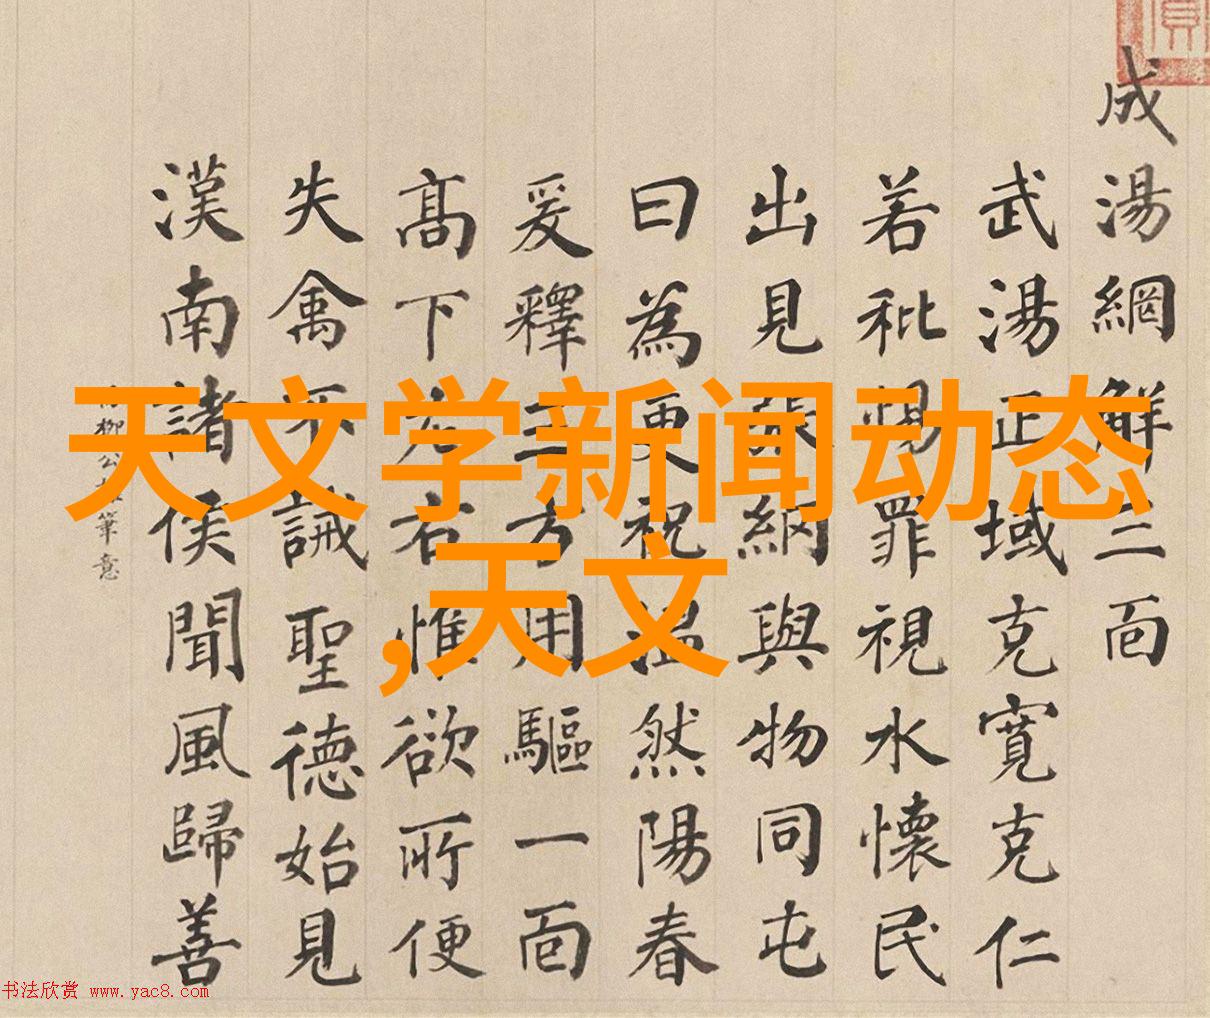 天文学新闻动态
,天文
成湯網觧三面
武湯正域克寬克仁
若秕惕罪視水懷民
出見張網與物同屯
曰為更祝溫然陽春
爰釋三方用驅一面
髙下左右惟欲所便
失禽不誡聖德始見
漢南諸侯聞風歸善
柳公筆意
书法欣赏 www.yac8.com